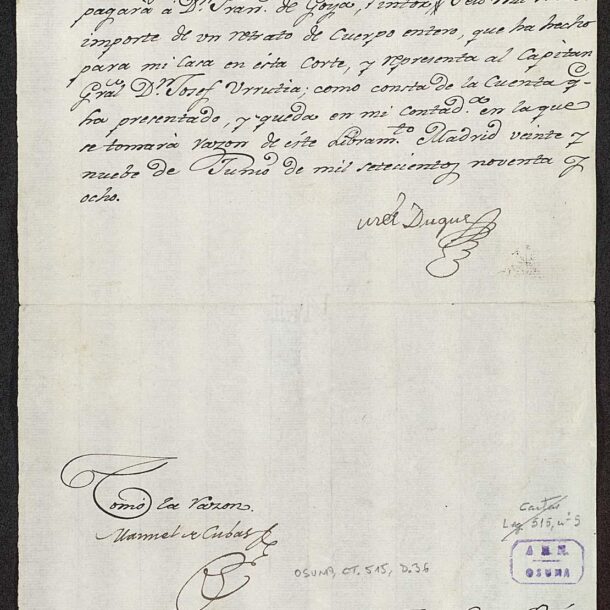 pagará á Dⁿ. Fran.ᶜᵒ de Goya, Pintor, Seis mil
importe de un retrato de Cuerpo entero, que ha hecho
para mi Casa en ésta Corte, y representa al Capitan
Grãl Dⁿ. Josef Urrutia; como consta de la Cuenta q.ᵉ
ha presentado, y queda en mi Contad.ᵃ en la que
se tomará razon de éste Libram.ᵗᵒ Madrid veinte y
nuebe de Junio de mil setecientos noventa y
ocho.
Duque
Tomó la razon.
Manuel de Cubas
Cartas
Leg. 515, nº 5
A H N
OSUNA
OSUNA, CT. 515, D. 36